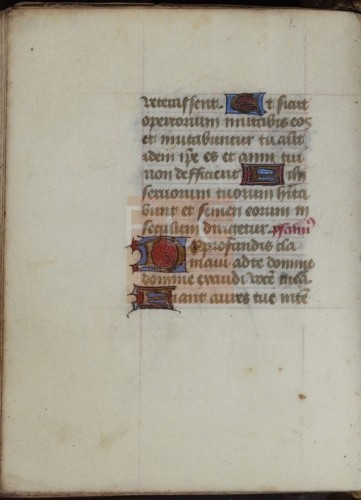 veterascent. Et sicut
opertorium mutabis eos
et mutabuntur tu aūt
idem ip̄e es et anni tui
non deficient Filii
seruorum tuorum hīta
bunt et semen eorum in
seculum dirigetur. psalmꝰ
De profundis cla
maui ad te domine
domine exaudi vocē meā
Fiant aures tue intē